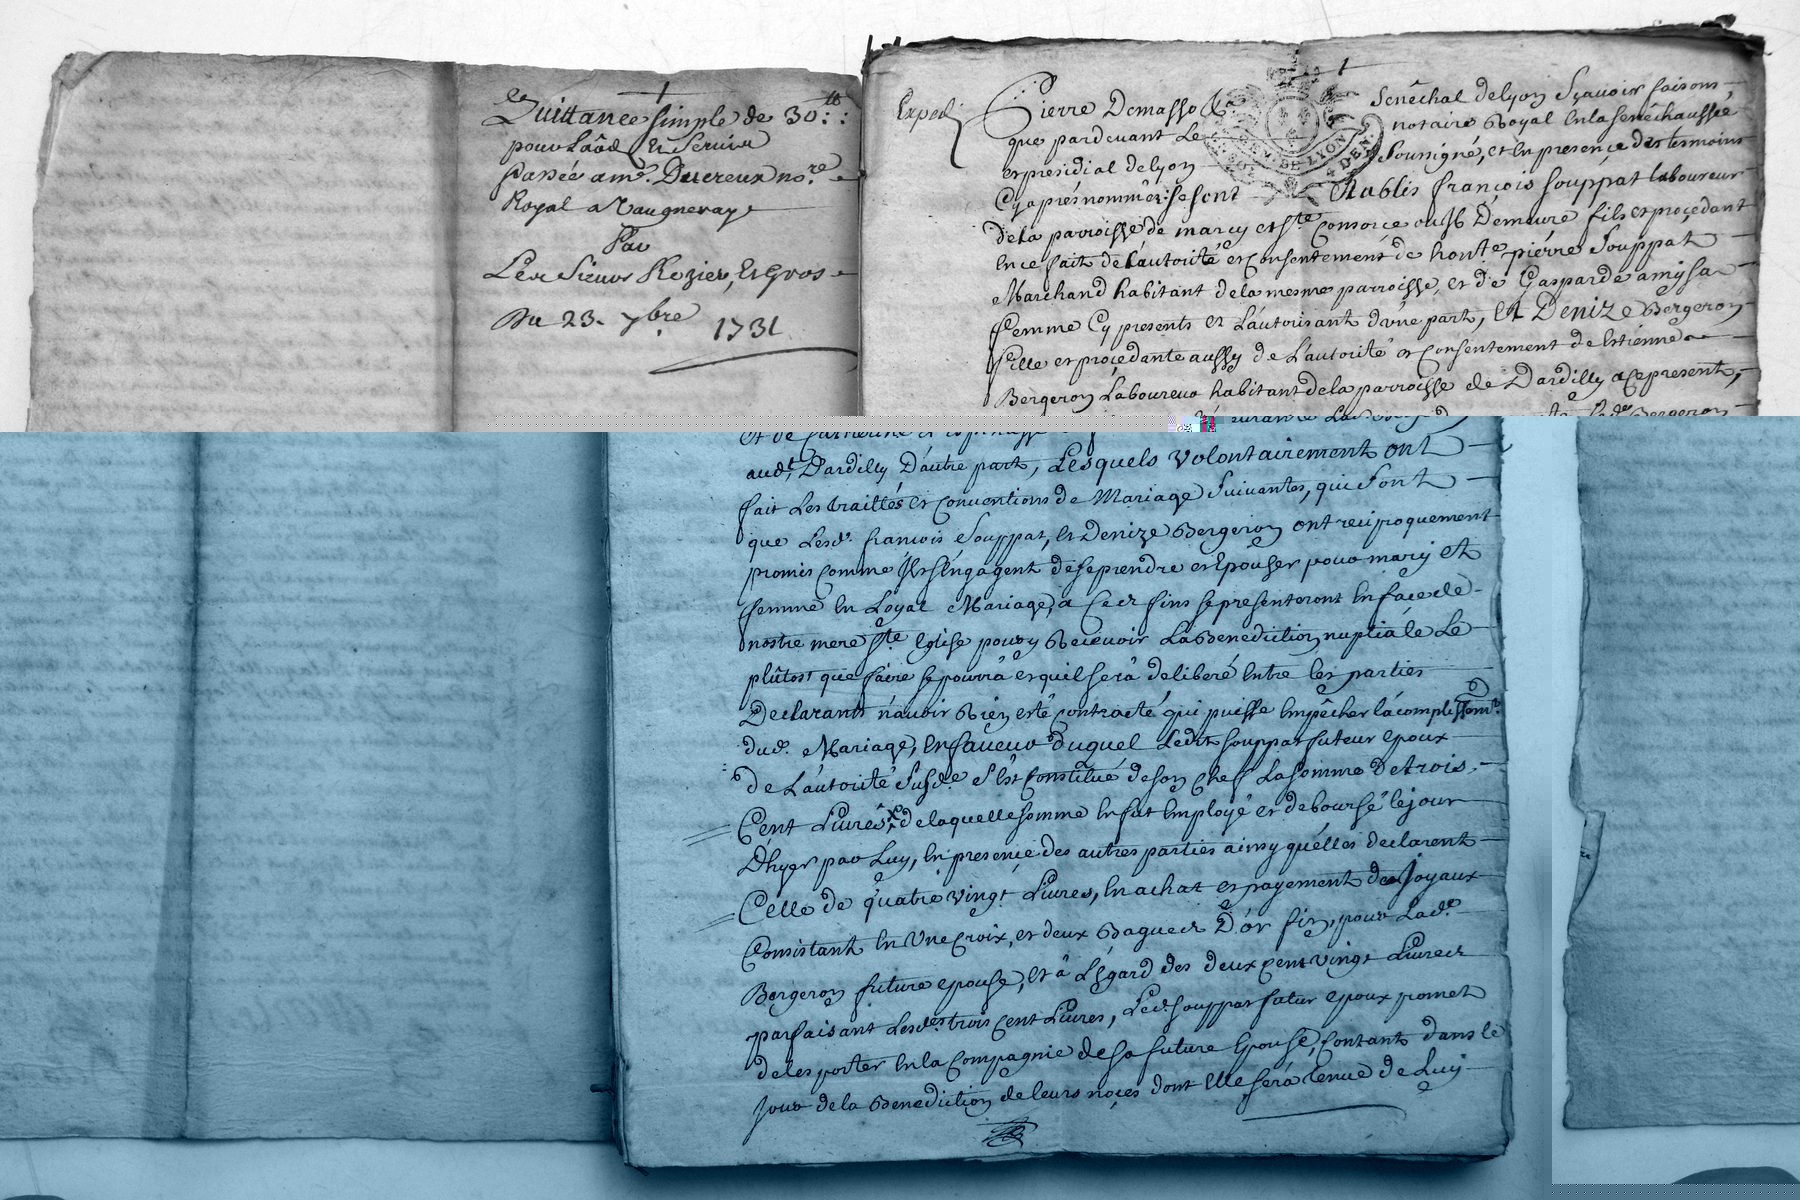 Quittance simple de 30:tt:
pour Laôd Et Servir
Passée a me. Ducreux no.re
Royal a Vaugneray
Par
Les Sieurs Rozier, Et Gros
Du 23. 7bre 1731
Expedi
Pierre Demasso &a Senéchal de Lyon Sçavoir faisons,
que pardevant Le notaire Royal En la senéchaussée
et presidial de Lyon Soussigné, et En presence des tesmoins
Cy aprés nommés: se sont Etablis françois souppat laboureur
de la parroisse de marcy et ste. Consorce ou Il Demeure fils et procedant
En ce fait de L'autorité et Consentement de honte. pierre Souppat
Marchand habitant de la mesme parroisse, et de Gasparde amy sa
femme Cy presents et L'autorisant d'une part, Et Denize Bergeron
fille et procedante aussy de L'autorité et Consentement de Estienne
Bergeron Laboureur habitant de la parroisse de Dardilly a ce present,
et de Catherine
aud.t Dardilly D'autre part, Lesquels volontairement ont
fait Les traittés et Conventions de Mariage Suivantes, qui Sont
que Lesd. francois Souppat, Et Denize Bergeron ont reciproquement
promis Comme Ils S'Engagent de se prendre et Epouser pour mary et
femme En Loyal Mariage, a Ces fins se presenteront En face de
nostre mere ste. Eglise pour y Recevoir La Benediction nuptiale Le
plûtost que faire se pourra et quil sera deliberé Entre les parties
Declarants n'avoir Rien esté contracté qui puisse Empêcher L'accomplissemt.
dud. Mariage, En faveur duquel Ledit Souppat futeur Epoux
de L'autorité Susde. S'Est Constitué de son Chef La somme de trois
Cent Livres, de laquelle somme En fut Employé et deboursé le jour
D'hyer par Luy, En presence des autres parties ainsy qu'elles declarent
Celle de quatre vingt Livres, En achat et payement des Joyaux
Consistant En Une Croix, et deux Bagues D'or fin, pour Lade.
Bergeron future Epouse, Et à L'égard des deux Cent vingt Livres
parfaisant Lesdes. trois Cent Livres, Led. Souppat futur Epoux promet
de les porter En la Compagnie de sa future Epouse, Contant dans le
Jour de la Benediction de leurs noçes dont Elle sera tenue de Luy